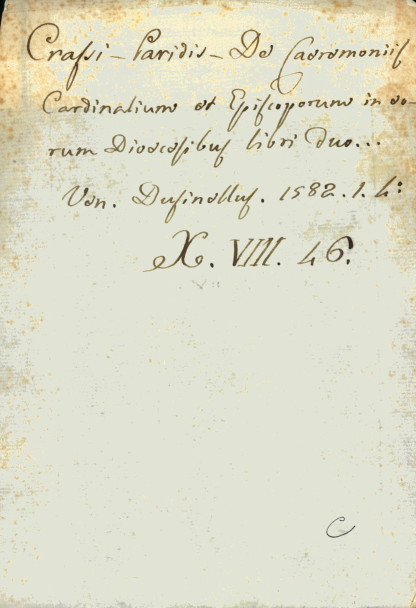 Crassi - Paridis - De Caeremoniis
Cardinalium et Episcoporum in eo
rum Dioecesibus libri duo...
Ven. Dusinellus. 1582. 1. 4:
X. VIII. 46.
C